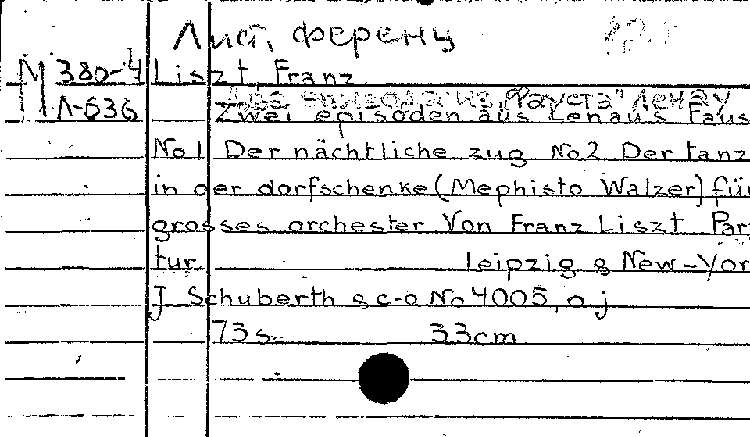 Лист, Ференц
М 380-4 Liszt, Franz
Два эпизода из "Фауста" Ленау
Л-636 Zwei episoden aus Lenaus Faus
No1 Der nächtliche zug No2 Der tanz
in der dorfschenke (Mephisto Walzer) für
grosses orchester Von Franz Liszt Par
tur leipzig & New-Yor
J Schuberth & c-o No 4005, o j
73 s. 33cm